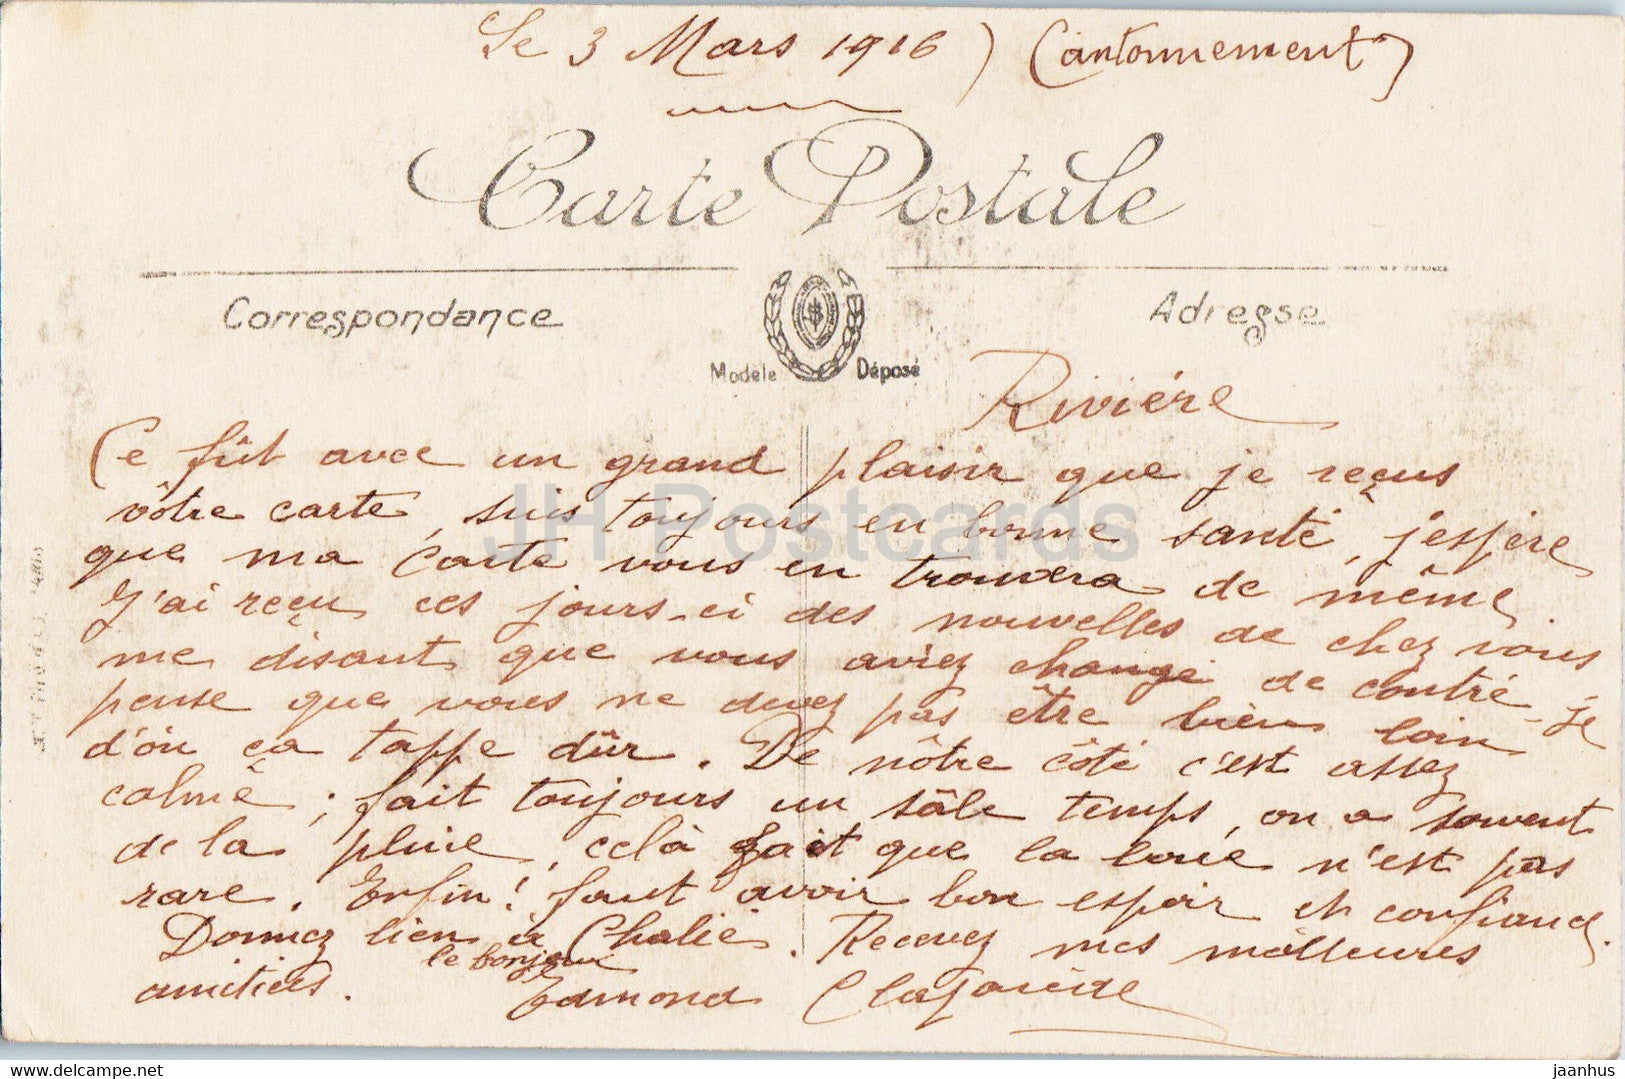 Le 3 Mars 1916 ) (Cantonnement)
Carte Postale
Correspondance
Adresse
Modèle Déposé
Rivière
Ce fût avec un grand plaisir que je reçus
vôtre carte, suis toujours en bonne santé, j'espère
que ma carte vous en trouvera de même
J'ai reçu ces jours-ci des nouvelles de chez vous
me disant que vous aviez changé de contré - je
pense que vous ne devez pas être bien loin
d'où ça tappe dûr. De nôtre côté c'est assez
calmé ; fait toujours un sâle temps, on a souvent
de la pluie, celà fait que la boue n'est pas
rare. Enfin! faut avoir bon espoir et confiance.
Donnez bien à Chalié. Recevez mes meilleures
le bonjour
amitiés. Edmond
JH Postcards
delcampe.net
jaanhus